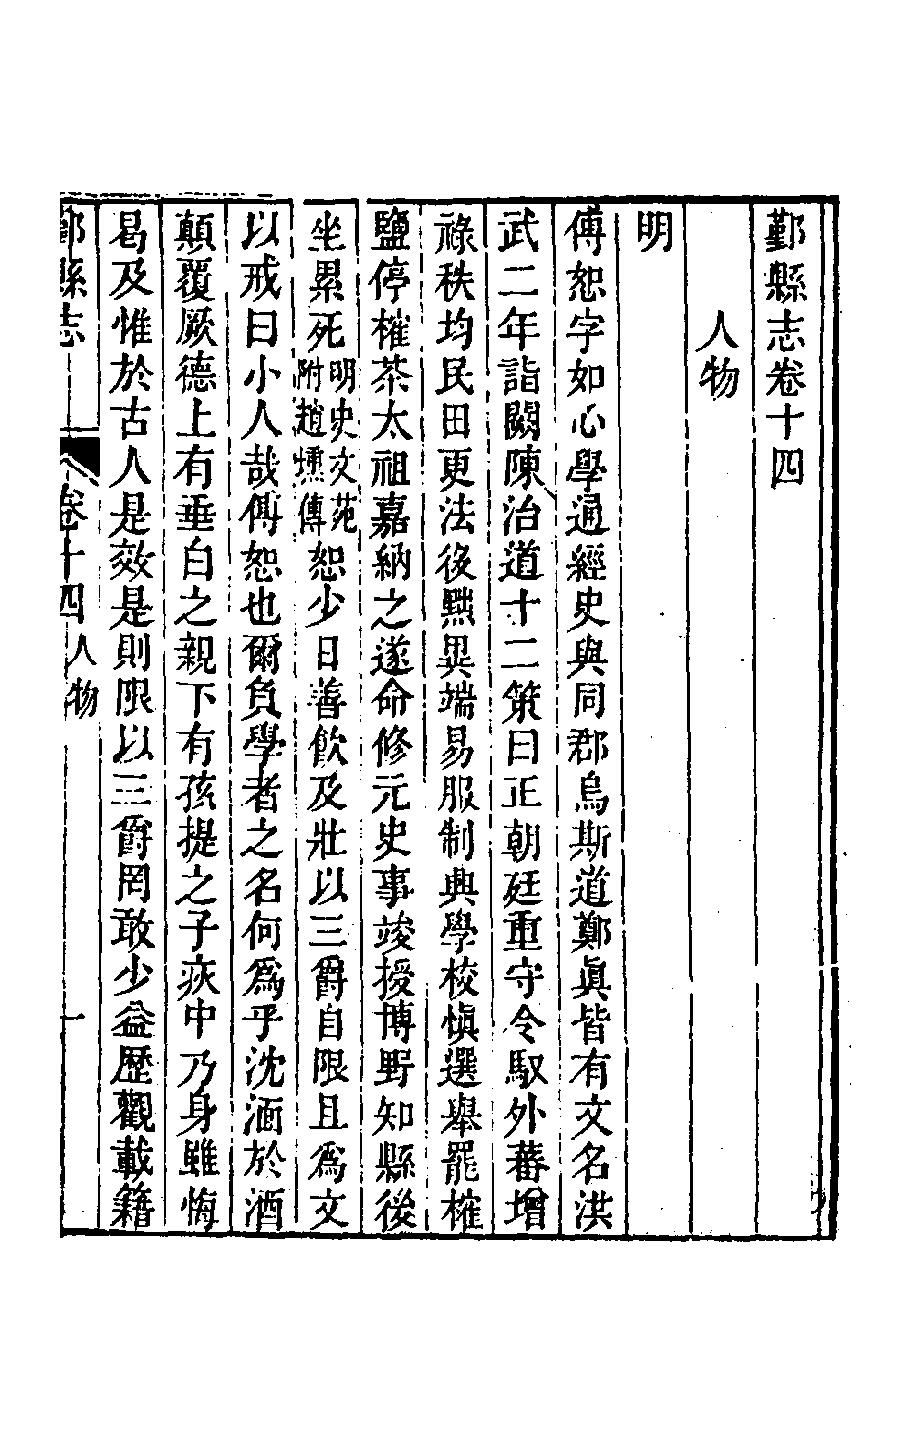 鄞縣志卷十四
人物
明
傅恕字如心學通經史與同郡烏斯道鄭眞皆有文名洪
武二年詣闕陳治道十二策曰正朝廷重守令馭外蕃增
祿秩均民田更法後黜異端易服制興學校愼選舉罷榷
鹽停榷茶太祖嘉納之遂命修元史事竣授博野知縣後
坐累死明史文苑附趙壎傳恕少日善飲及壯以三爵自限且爲文
以戒曰小人哉傅恕也爾負學者之名何爲乎沈湎於酒
顛覆厥德上有垂白之親下有孩提之子疢中乃身雖悔
曷及惟於古人是效是則限以三爵罔敢少益歷觀載籍
鄞縣志 卷十四 人物 一